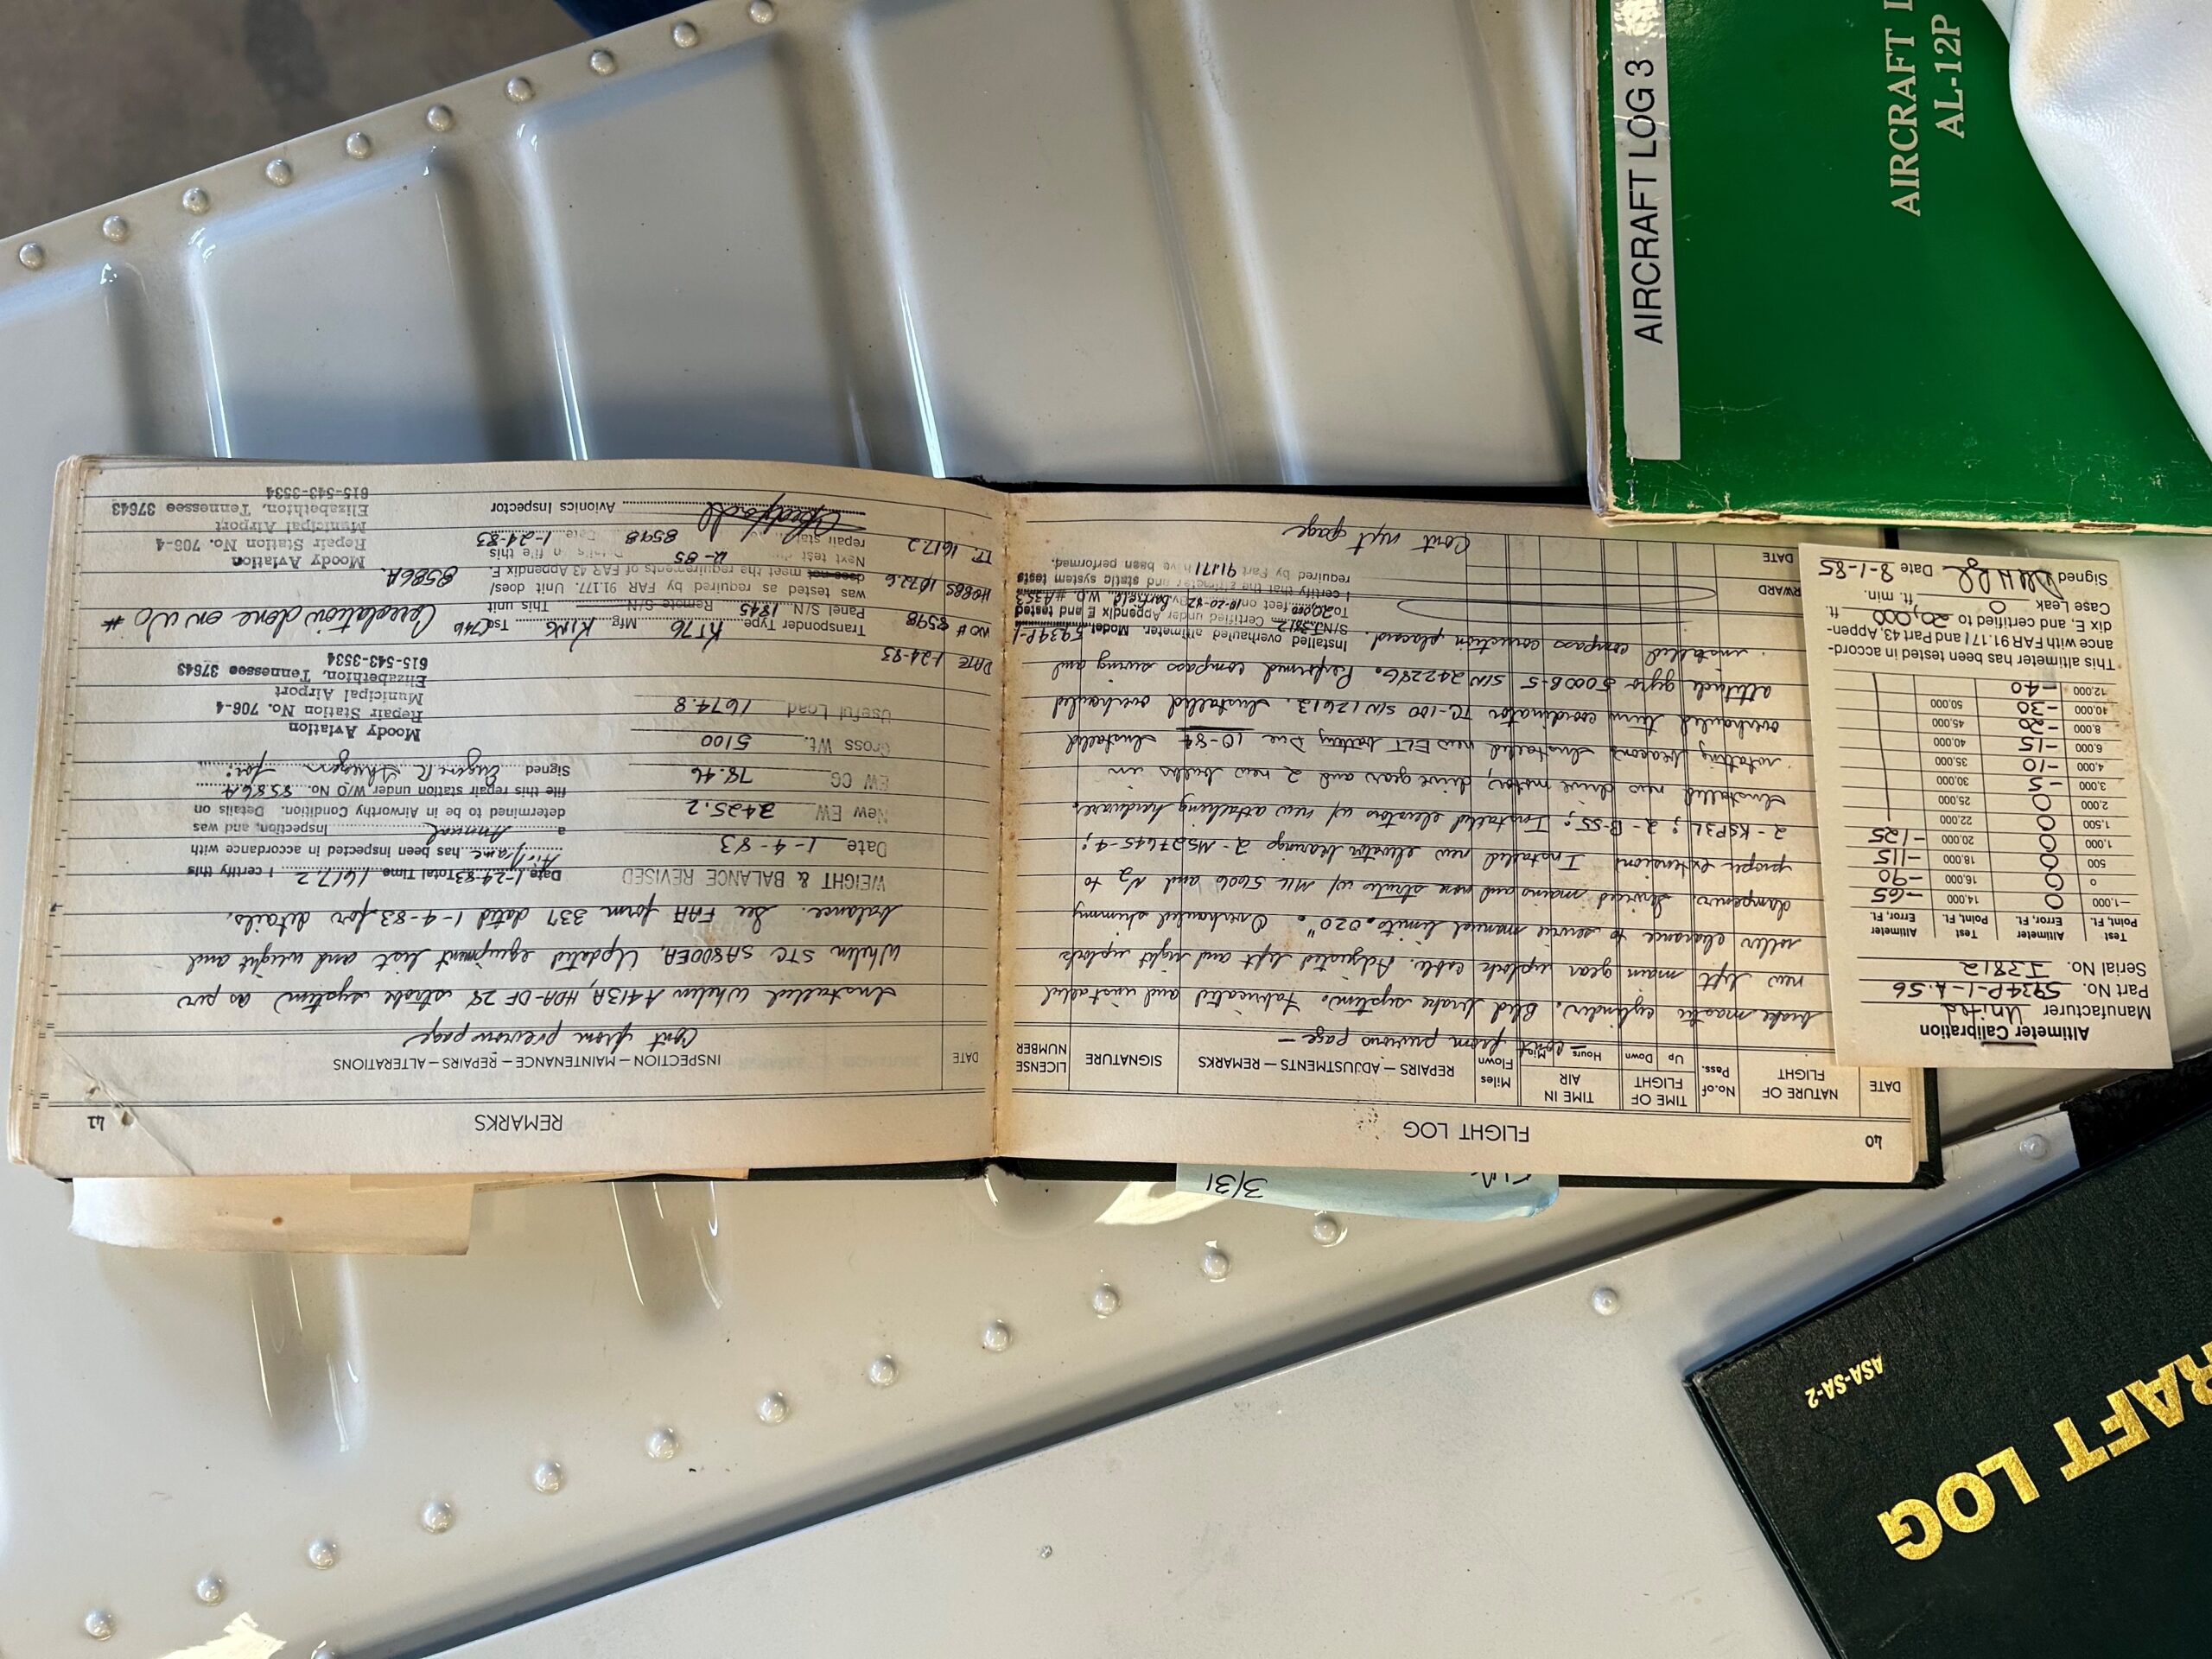 40
FLIGHT LOG
DATE
NATURE OF FLIGHT
No. of Pass.
TIME OF FLIGHT
Up
Down
TIME IN AIR
Hours
Min.
Miles Flown
REPAIRS — ADJUSTMENTS — REMARKS
SIGNATURE
LICENSE NUMBER
— cont from previous page —
brake master cylinder. Bled brake system. Fabricated and installed
new left main gear uplock cable. Adjusted left and right uplock
roller clearance to service manual limits .020". Overhauled shimmy
dampener. Serviced mains and nose struts w/ MIL 5606 and N2 to
proper extension. Installed new elevator bearings 2 - MS27645-4;
2 - KSP3L; 2 - B-55; Installed elevators w/ new attaching hardware.
Installed new drive motor, drive gear and 2 new bulbs in
rotating beacon. Installed new ELT battery Due 10-84 Installed
overhauled turn coordinator TC-100 S/N 12613. Installed overhauled
attitude gyro 5000B-5 S/N 24229G. Performed compass swing and
installed compass correction placard.
Installed overhauled altimeter. Model 5934P-1
S/N I3812 Certified under Appendix E and tested
To 20,000 feet on 10-20-82 by Barfield W.O. #A353
I certify that the altimeter and static system tests
required by Part 91.171 have been performed.
FORWARD
DATE
Cont next page
REMARKS
41
DATE
INSPECTION — MAINTENANCE — REPAIRS — ALTERATIONS
Cont from previous page
Installed Whelen A413A, HDA-DF 28 strobe system) as per
Whelen STC SA800EA, Updated equipment list and weight and
balance. See FAA form 337 dated 1-4-83 for details.
WEIGHT & BALANCE REVISED
Date 1-4-83
New EW 3425.2
EW CG 78.46
Gross Wt. 5100
Useful Load 1674.8
Date 1-24-83 Total Time 1617.2 I certify this
Airframe has been inspected in accordance with
a Annual Inspection, and was
determined to be in Airworthy Condition. Details on
file this repair station under W/O No. 8586A
Signed Eugene R. for:
Moody Aviation
Repair Station No. 706-4
Municipal Airport
Elizabethton, Tennessee 37643
615-543-3534
DATE 1-24-83
WO# 8598
HOBBS 1072.6
TT. 1617.2
Transponder Type KT76 Mfg KING Tso C74b
Panel S/N 1845 Remote S/N This unit
was tested as required by FAR 91.177. Unit does/
does not meet the requirements of FAR 43 Appendix E.
Next test due 12-85 Details on file in this
repair station 8598 Date 1-24-83
Avionics Inspector
Correlation done on W/O #
8586A.
Moody Aviation
Repair Station No. 706-4
Municipal Airport
Elizabethton, Tennessee 37643
615-543-3534
Altimeter Calibration
Manufacturer United
Part No. 5934P-1-A.56
Serial No. I3812
Test Point, Ft.
Altimeter Error, Ft.
Test Point, Ft.
Altimeter Error, Ft.
—1,000 0 14,000 -65
0 0 16,000 -90
500 0 18,000 -115
1,000 0 20,000 -125
1,500 0 22,000
2,000 0 25,000
3,000 -5 30,000
4,000 -10 35,000
6,000 -15 40,000
8,000 -20 45,000
10,000 -30 50,000
12,000 -40
This altimeter has been tested in accord-
ance with FAR 91.171 and Part 43, Appen-
dix E. and certified to 20,000 ft.
Case Leak 0 ft. min.
Signed Date 8-1-85
3/31
AIRCRAFT LOG 3
AIRCRAFT L
AL-12P
RAFT LOG
ASA-SA-2